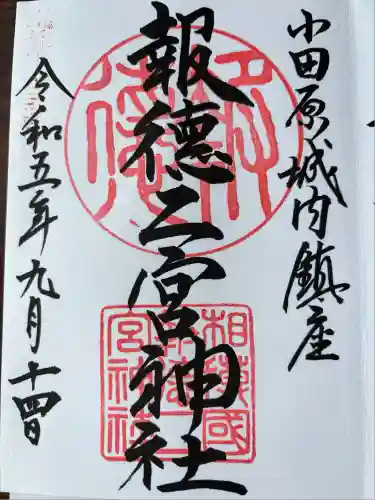 小田原城内鎮座
報徳二宮神社
令和五年九月十四日
相模國
報徳二
宮神社
報徳